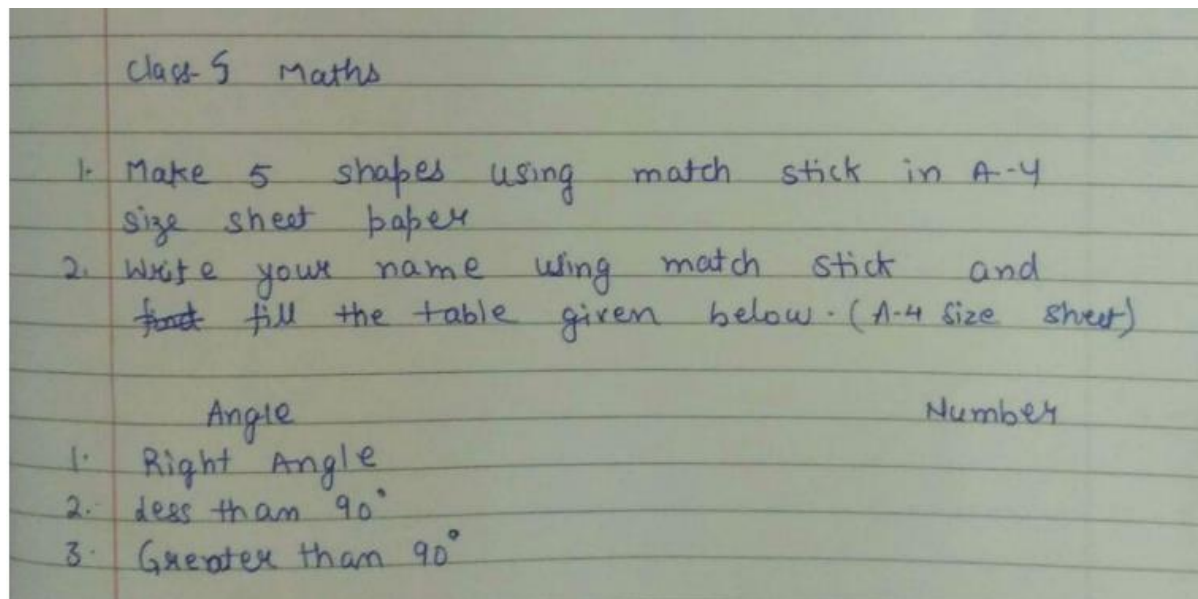 Class-5 Maths
1. Make 5 shapes using match stick in A-4
size sheet paper
2. Write your name using match stick and
fill the table given below. (A-4 size sheet)
Angle Number
1. Right Angle
2. Less than 90°
3. Greater than 90°